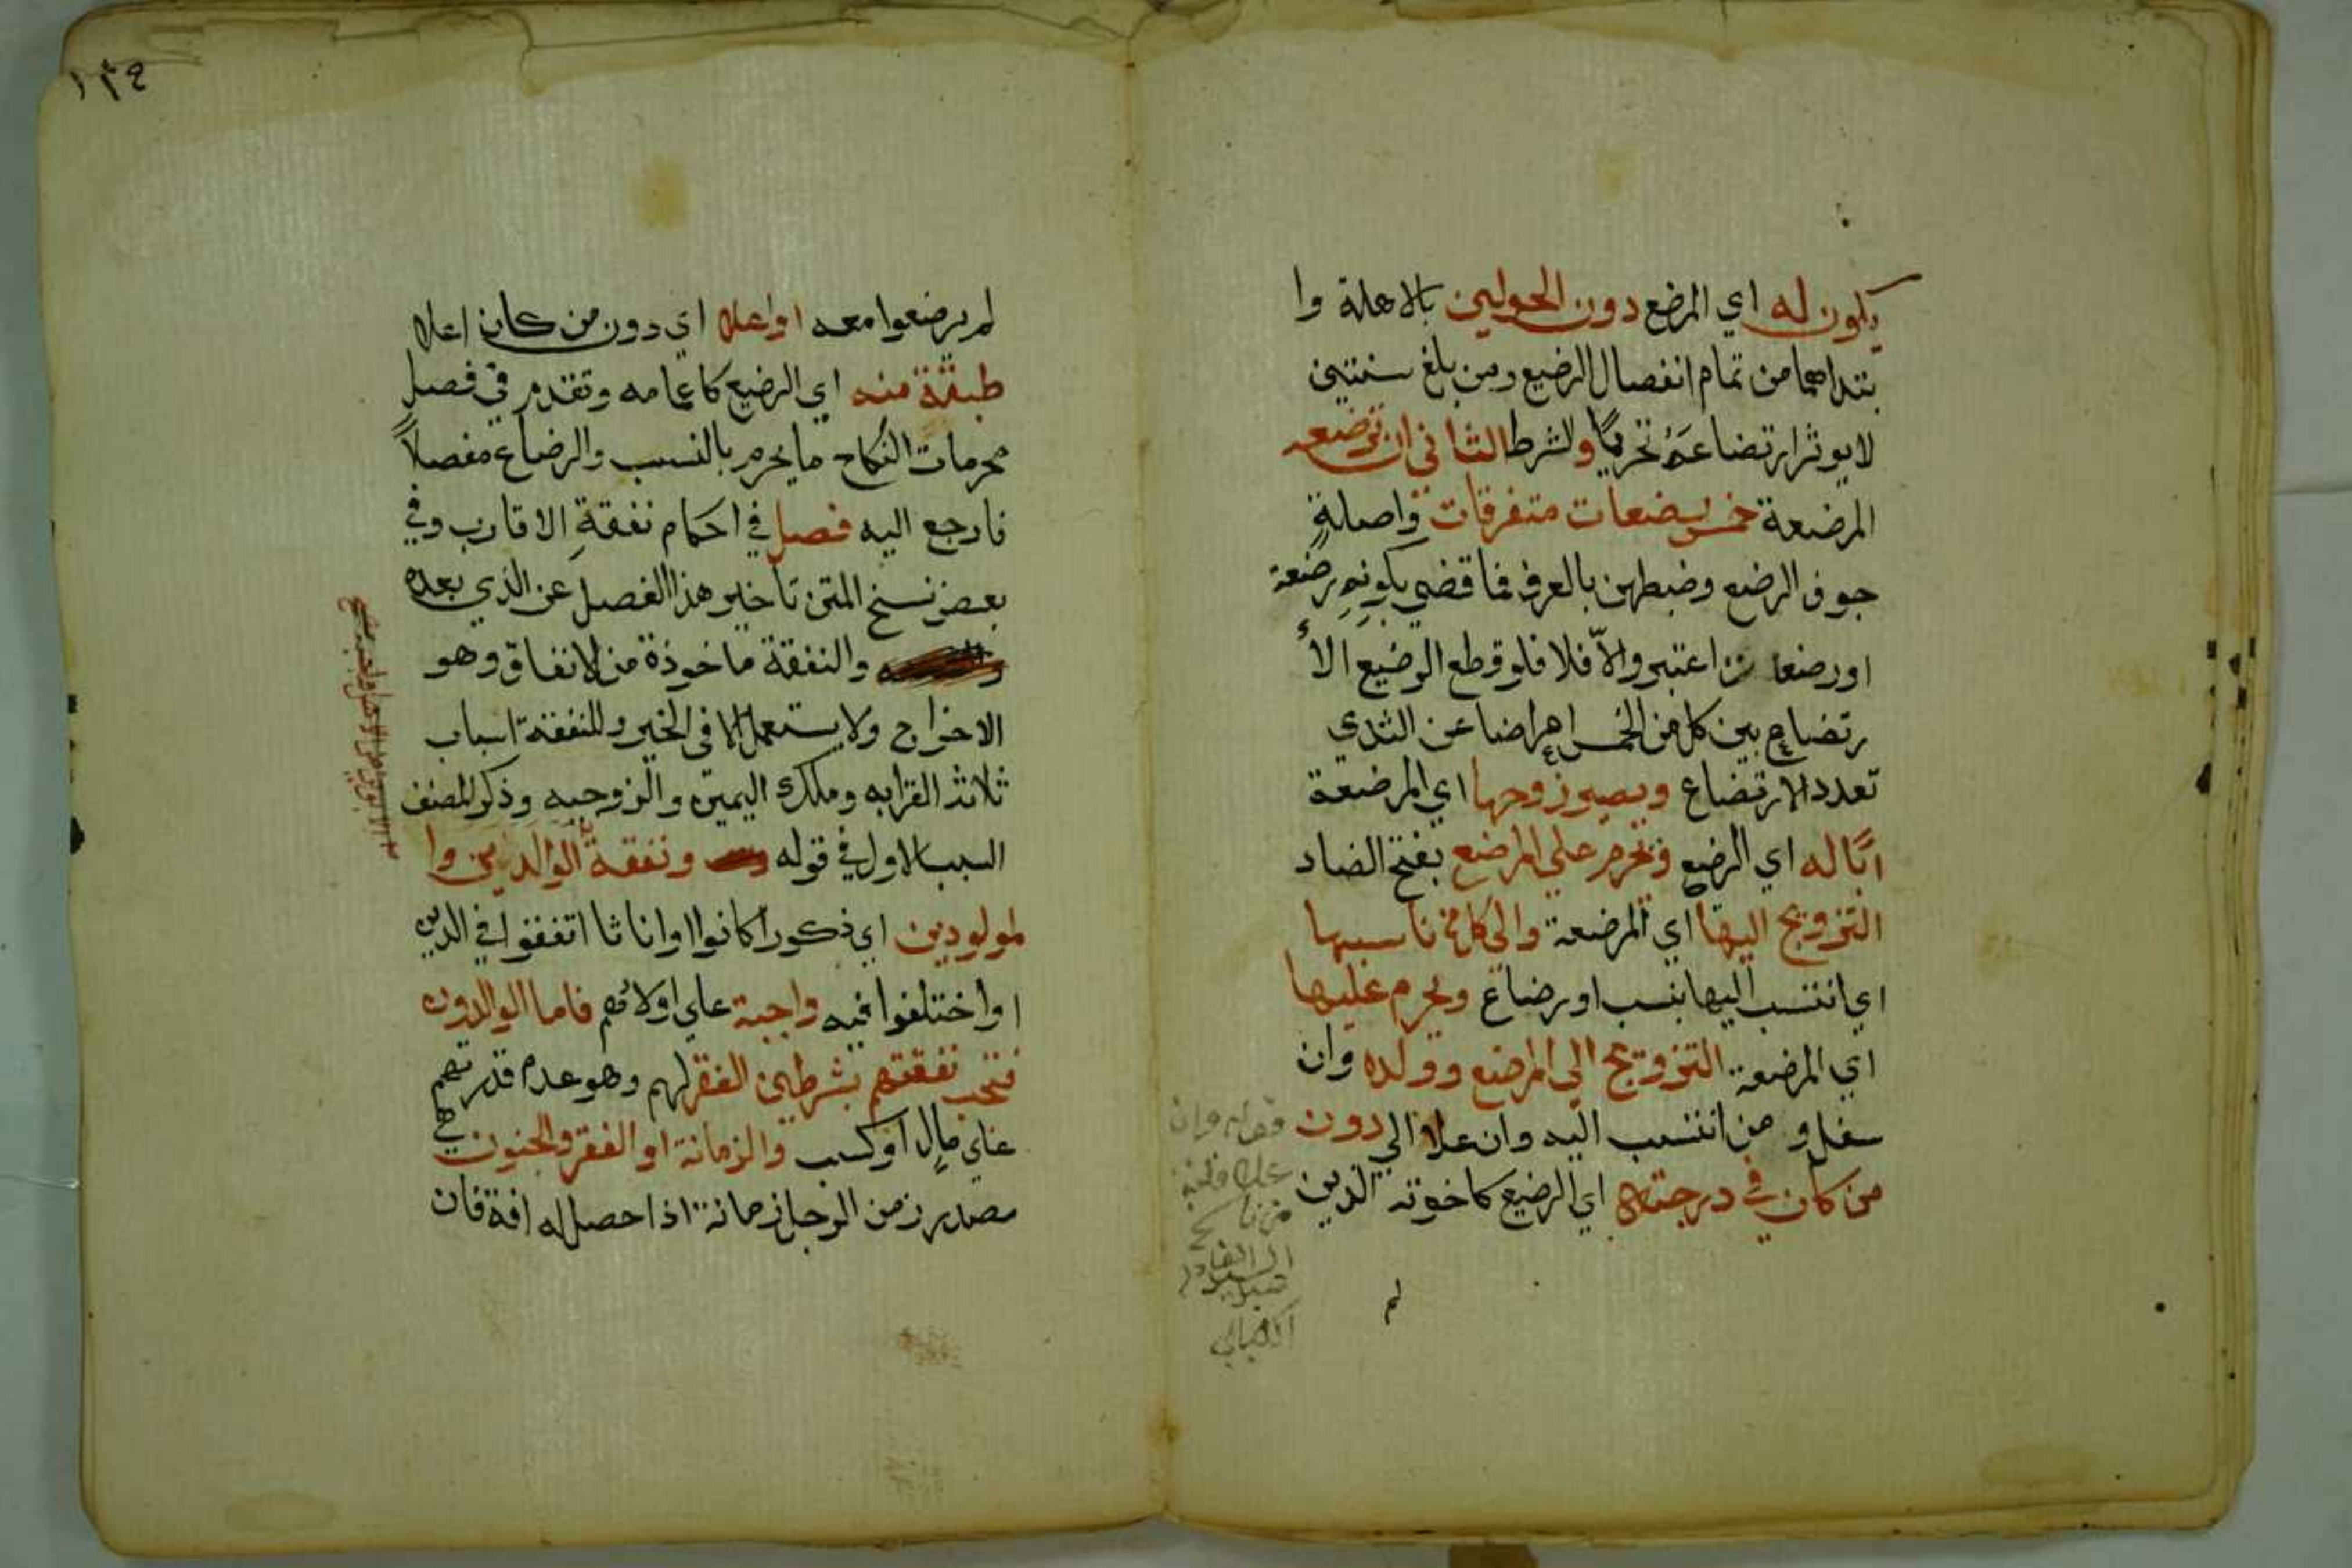 يكون له اي المرضع دون الحولين بالاهلة وا
بتداهما من تمام انفصال الرضيع ومن بلغ سنتين
لا يوثر ارتضاعه تحريمًا والشرط الثاني ان ترضعه
المرضعة خمس رضعات متفرقات واصلةٍ
جوف الرضيع وضبطهن بالعرف فما قضي بكونهِ رضعة
او رضعات اعتبر والاّ فلا فلو قطع الرضيع الأ
رتضاع بين كل من الخمس اعراضا عن الثدي
تعدد الارتضاع ويصير زوجها اي المرضعة
ابًا له اي الرضيع وتحرم على المرضع بفتح الضاد
التزويج اليها اي المرضعة والى كل من ناسبها
اي انتسب اليها بنسب او رضاع ويحرم عليها
اي المرضعة التزويج الي المرضع وولده وان
سفل و من انتسب اليه وان علا الي دون
من كان في درجته اي الرضيع كاخوته الذين
لم
قوله وان
لم يرضعوا معه او اعلا اي دون من كان اعلا
طبقة منه اي الرضيع كاعمامه وتقدم في فصل
محرمات النكاح ما يحرم بالنسب والرضاع مفصلاً
فارجع اليه فصل في احكام نفقةِ الاقارب وفي
بعض نسخ المتن تأخير هذا الفصل عن الذي بعده
والنفقة ماخوذة من الانفاق وهو
الاخراج ولا يستعمل الا في الخير وللنفقة اسباب
ثلاثة القرابه وملك اليمين والزوجيه وذكر المصنف
السبب الاول في قوله ونفقة الوالدين وا
لمولودين اي ذكورا كانوا او اناثا اتفقوا في الدين
او اختلفوا فيه واجبة علي اولادهم فاما الوالدون
فتجب نفقتهم بشرطين الفقر لهم وهو عدم قدرتهم
علي مالٍ او كسب والزمانة او الفقر والجنون هي
مصدر زمن الرجل زمانة اذا حصل له افة فان
١٣٤